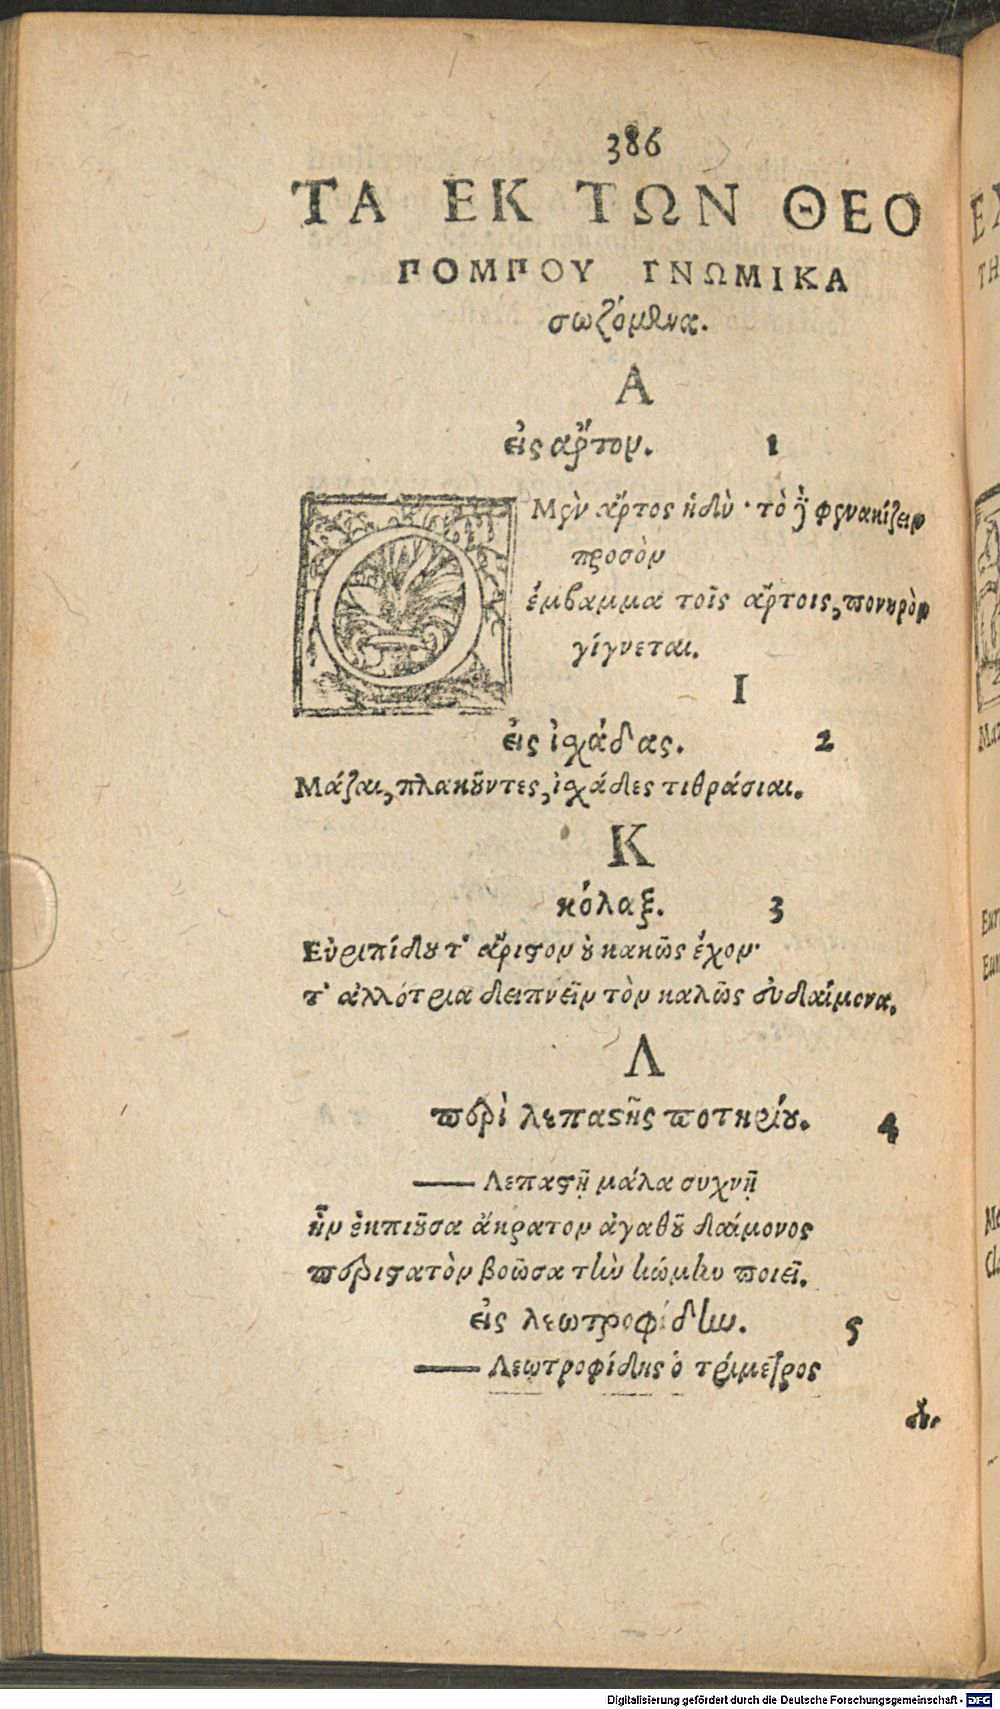 386
ΤΑ ΕΚ ΤΩΝ ΘΕΟ
ΠΟΜΠΟΥ ΓΝΩΜΙΚΑ
σωζόμενα.
Α
εἰς ἄρτον. 1
Ὁ Μὲν ἄρτος ἡδὺ· τὸ δὲ φενακίζειν
προσὸν
ἔμβαμμα τοῖς ἄρτοις, πονηρὸν
γίγνεται.
Ι
εἰς ἰσχάδας. 2
Μάζαι, πλακοῦντες, ἰσχάδες τιθράσιαι.
Κ
κόλαξ. 3
Εὐριπίδου τ' ἄριστον οὐ κακῶς ἔχον·
τ' ἀλλότρια δειπνεῖν τὸν καλῶς εὐδαίμονα.
Λ
περὶ λεπαστῆς ποτηρίου. 4
— Λεπαστῇ μάλα συχνῇ
ἣν ἐκπιοῦσα ἄκρατον ἀγαθοῦ δαίμονος
περίστατὸν βοῶσα τὴν κώμην ποιεῖ.
εἰς λεωτροφίδην. 5
— Λεωτροφίδης ὁ τρίμετρος